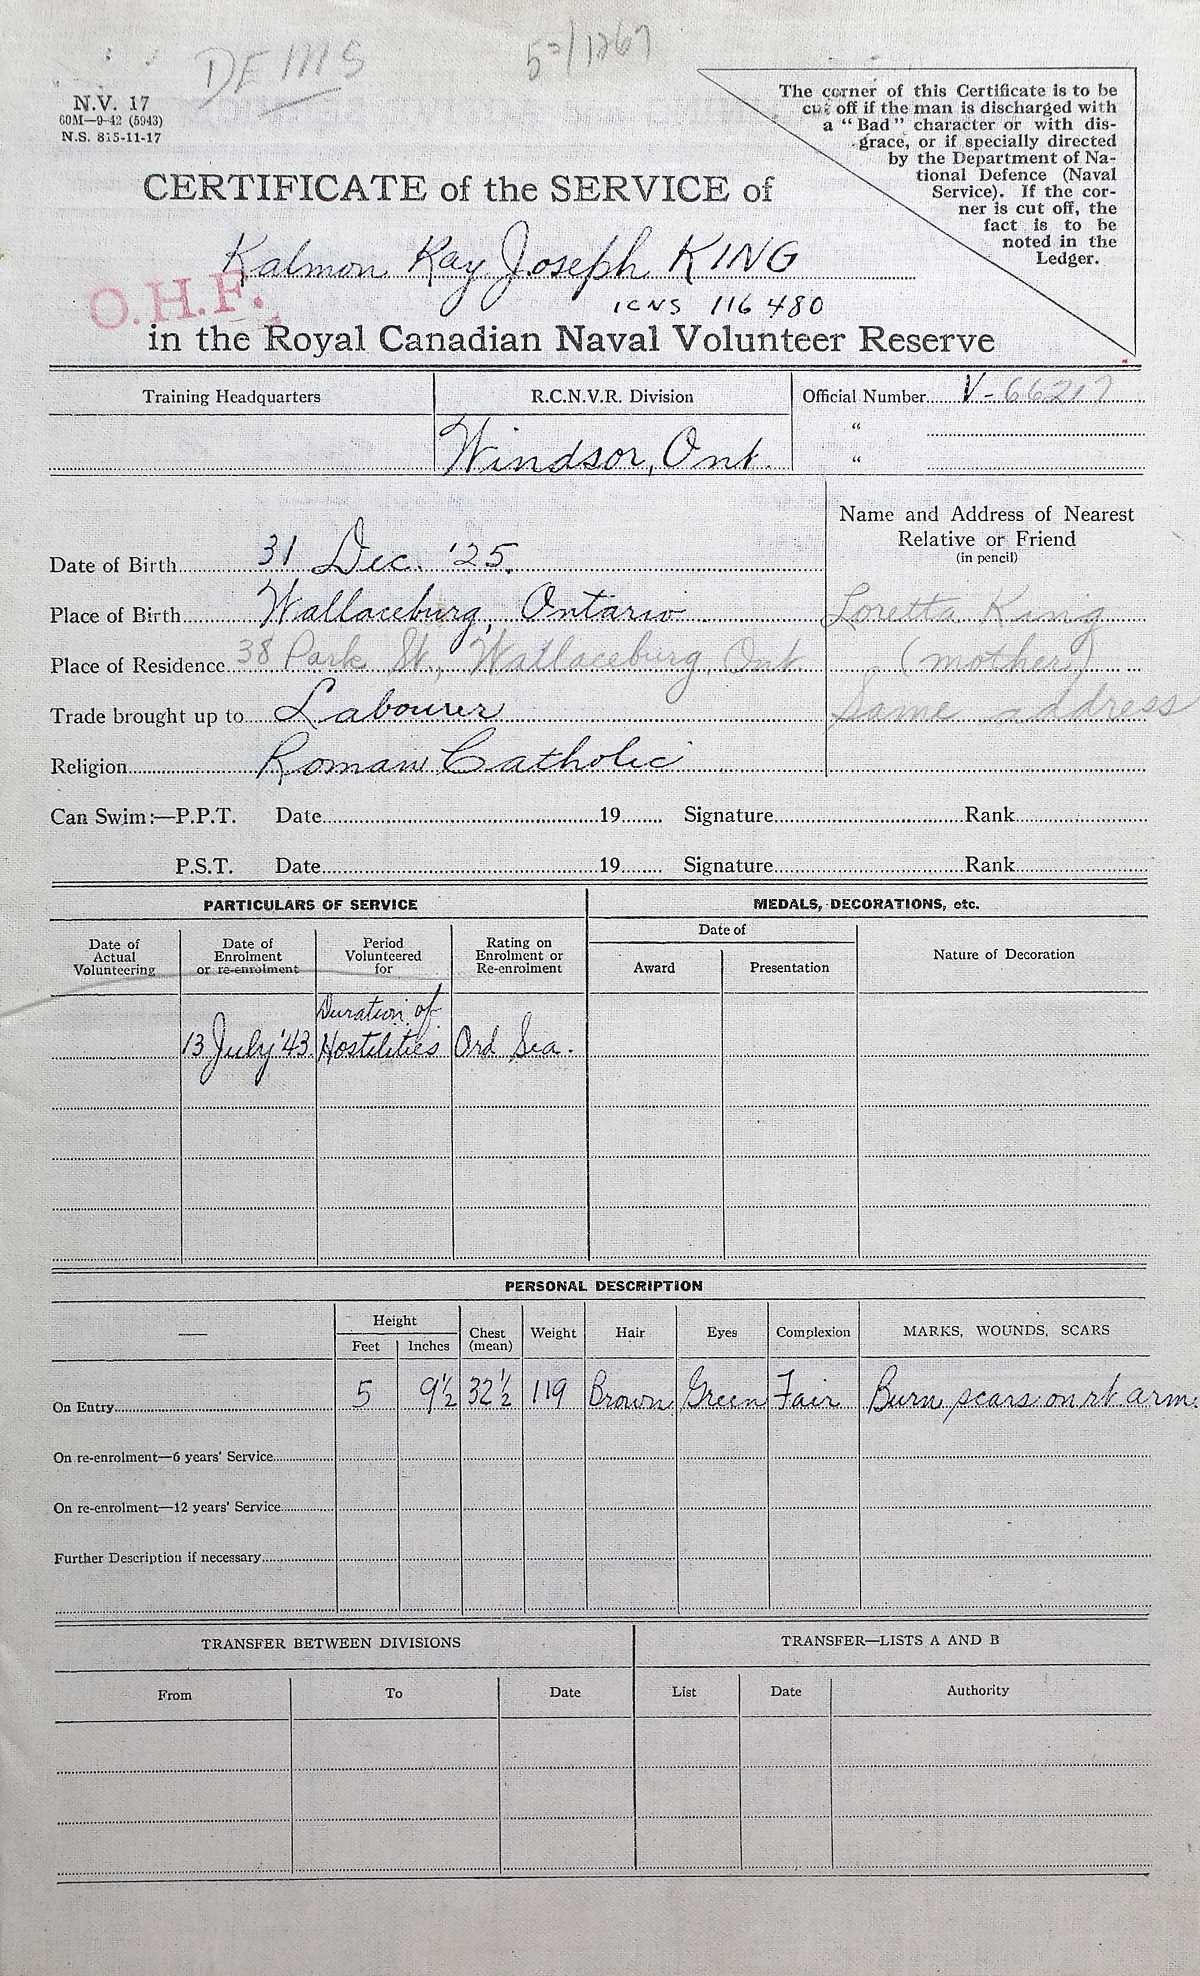 DEMS
N.V. 17
60M—9-42 (5943)
N.S. 815-11-17
The corner of this Certificate is to be
cut off if the man is discharged with
a "Bad" character or with dis-
grace, or if specially directed
by the Department of Na-
tional Defence (Naval
Service). If the cor-
ner is cut off, the
fact is to be
noted in the
Ledger.
CERTIFICATE of the SERVICE of
Kalmon Ray Joseph KING
O.H.F.
ICNS 116480
in the Royal Canadian Naval Volunteer Reserve
Training Headquarters R.C.N.V.R. Division Official Number V-66217
"
Windsor, Ont. "
Name and Address of Nearest
Relative or Friend
(in pencil)
Date of Birth 31 Dec. '25.
Place of Birth Wallaceburg, Ontario Loretta King
Place of Residence 38 Park St., Wallaceburg, Ont. (mother)
Trade brought up to Labourer Same address
Religion Roman Catholic
Can Swim:—P.P.T. Date 19 Signature Rank
P.S.T. Date 19 Signature Rank
PARTICULARS OF SERVICE MEDALS, DECORATIONS, etc.
Date of Actual Volunteering Date of Enrolment or re-enrolment Period Volunteered for Rating on Enrolment or Re-enrolment Date of Nature of Decoration
Award Presentation
13 July '43 Duration of Hostilities Ord Sea.
PERSONAL DESCRIPTION
— Height Chest (mean) Weight Hair Eyes Complexion MARKS, WOUNDS, SCARS
Feet Inches
On Entry 5 9½ 32½ 119 Brown Green Fair Burn scars on rt arm.
On re-enrolment—6 years' Service
On re-enrolment—12 years' Service
Further Description if necessary
TRANSFER BETWEEN DIVISIONS TRANSFER—LISTS A AND B
From To Date List Date Authority